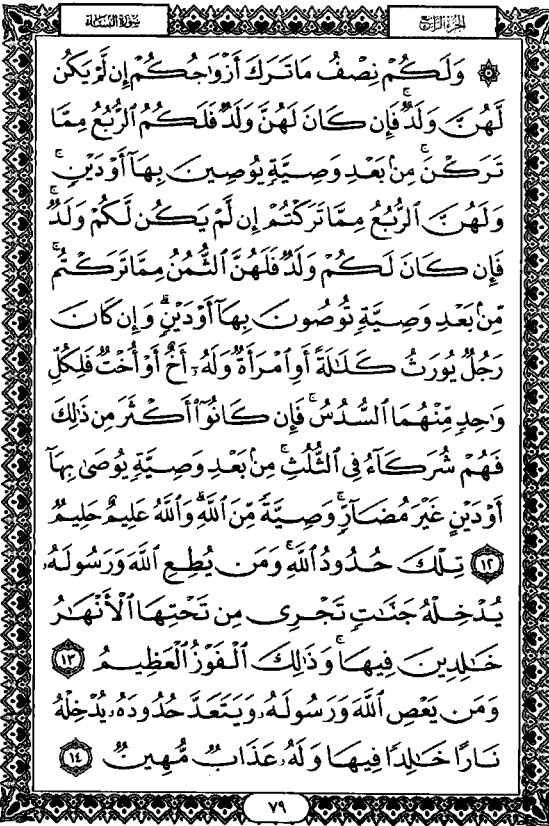 الجزء الرابع
سورة النساء
۞ وَلَكُمْ نِصْفُ مَا تَرَكَ أَزْوَاجُكُمْ إِن لَّمْ يَكُن
لَّهُنَّ وَلَدٌ ۚ فَإِن كَانَ لَهُنَّ وَلَدٌ فَلَكُمُ الرُّبُعُ مِمَّا
تَرَكْنَ ۚ مِنۢ بَعْدِ وَصِيَّةٍ يُوصِينَ بِهَآ أَوْ دَيْنٍ ۚ
وَلَهُنَّ الرُّبُعُ مِمَّا تَرَكْتُمْ إِن لَّمْ يَكُن لَّكُمْ وَلَدٌ ۚ
فَإِن كَانَ لَكُمْ وَلَدٌ فَلَهُنَّ الثُّمُنُ مِمَّا تَرَكْتُم ۚ
مِّنۢ بَعْدِ وَصِيَّةٍ تُوصُونَ بِهَآ أَوْ دَيْنٍ ۗ وَإِن كَانَ
رَجُلٌ يُورَثُ كَلَٰلَةً أَوِ امْرَأَةٌ وَلَهُۥٓ أَخٌ أَوْ أُخْتٌ فَلِكُلِّ
وَٰحِدٍ مِّنْهُمَا السُّدُسُ ۚ فَإِن كَانُوٓا۟ أَكْثَرَ مِن ذَٰلِكَ
فَهُمْ شُرَكَآءُ فِى الثُّلُثِ ۚ مِنۢ بَعْدِ وَصِيَّةٍ يُوصَىٰ بِهَآ
أَوْ دَيْنٍ غَيْرَ مُضَآرٍّ ۚ وَصِيَّةً مِّنَ اللَّهِ ۗ وَاللَّهُ عَلِيمٌ حَلِيمٌ
١٢ تِلْكَ حُدُودُ اللَّهِ ۚ وَمَن يُطِعِ اللَّهَ وَرَسُولَهُۥ
يُدْخِلْهُ جَنَّٰتٍ تَجْرِى مِن تَحْتِهَا الْأَنْهَٰرُ
خَٰلِدِينَ فِيهَا ۚ وَذَٰلِكَ الْفَوْزُ الْعَظِيمُ ١٣
وَمَن يَعْصِ اللَّهَ وَرَسُولَهُۥ وَيَتَعَدَّ حُدُودَهُۥ يُدْخِلْهُ
نَارًا خَٰلِدًا فِيهَا وَلَهُۥ عَذَابٌ مُّهِينٌ ١٤
٧٩